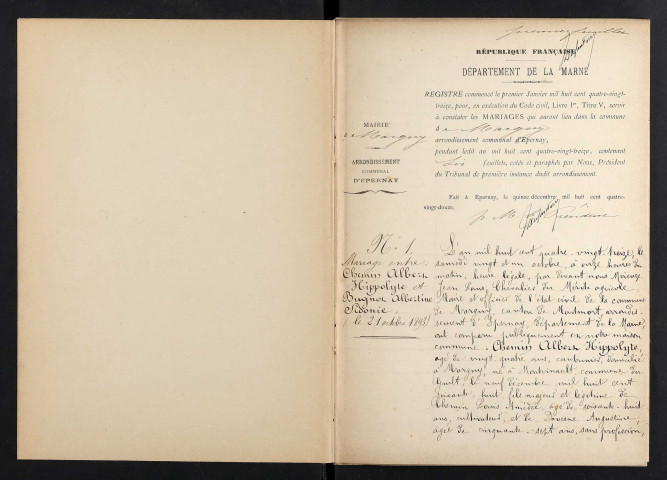 premier feuillet
RÉPUBLIQUE FRANÇAISE
DÉPARTEMENT DE LA MARNE
REGISTRE commencé le premier Janvier mil huit cent quatre-vingt-
treize, pour, en exécution du Code civil, Livre Ier, Titre V, servir
à constater les MARIAGES qui auront lieu dans la commune
de Margny
arrondissement communal d'Epernay,
pendant ledit an mil huit cent quatre-vingt-treize, contenant
Six feuillets, cotés et paraphés par Nous, Président
du Tribunal de première instance dudit arrondissement.
Fait à Epernay, le quinze décembre mil huit cent quatre-
vingt-douze.
p. M. Président
MAIRIE
de Margny
ARRONDISSEMENT
COMMUNAL
D'EPERNAY
N° 1.
Mariage entre
Chemin Albert
Hippolyte et
Bugnot Albertine
Sidonie.
le 21 octobre 1893
L'an mil huit cent quatre-vingt treize, le
samedi vingt et un octobre, à onze heures du
matin, heure légale, par devant nous
Jean Louis, Chevalier du Mérite agricole,
Maire et officier de l'état civil de la commune
de Margny, canton de Montmort, arrondis-
sement d'Epernay, département de la Marne,
ont comparu publiquement en notre maison
commune : Chemin Albert Hippolyte,
âgé de vingt quatre ans, cantonnier, domicilié
à Margny, né à commune du
Gault, le neuf décembre mil huit cent
soixante huit fils majeur et légitime de
Chemin Louis Amédée, âgé de soixante-huit
ans, cultivateur, et de Augustine,
âgée de cinquante-sept ans, sans profession,